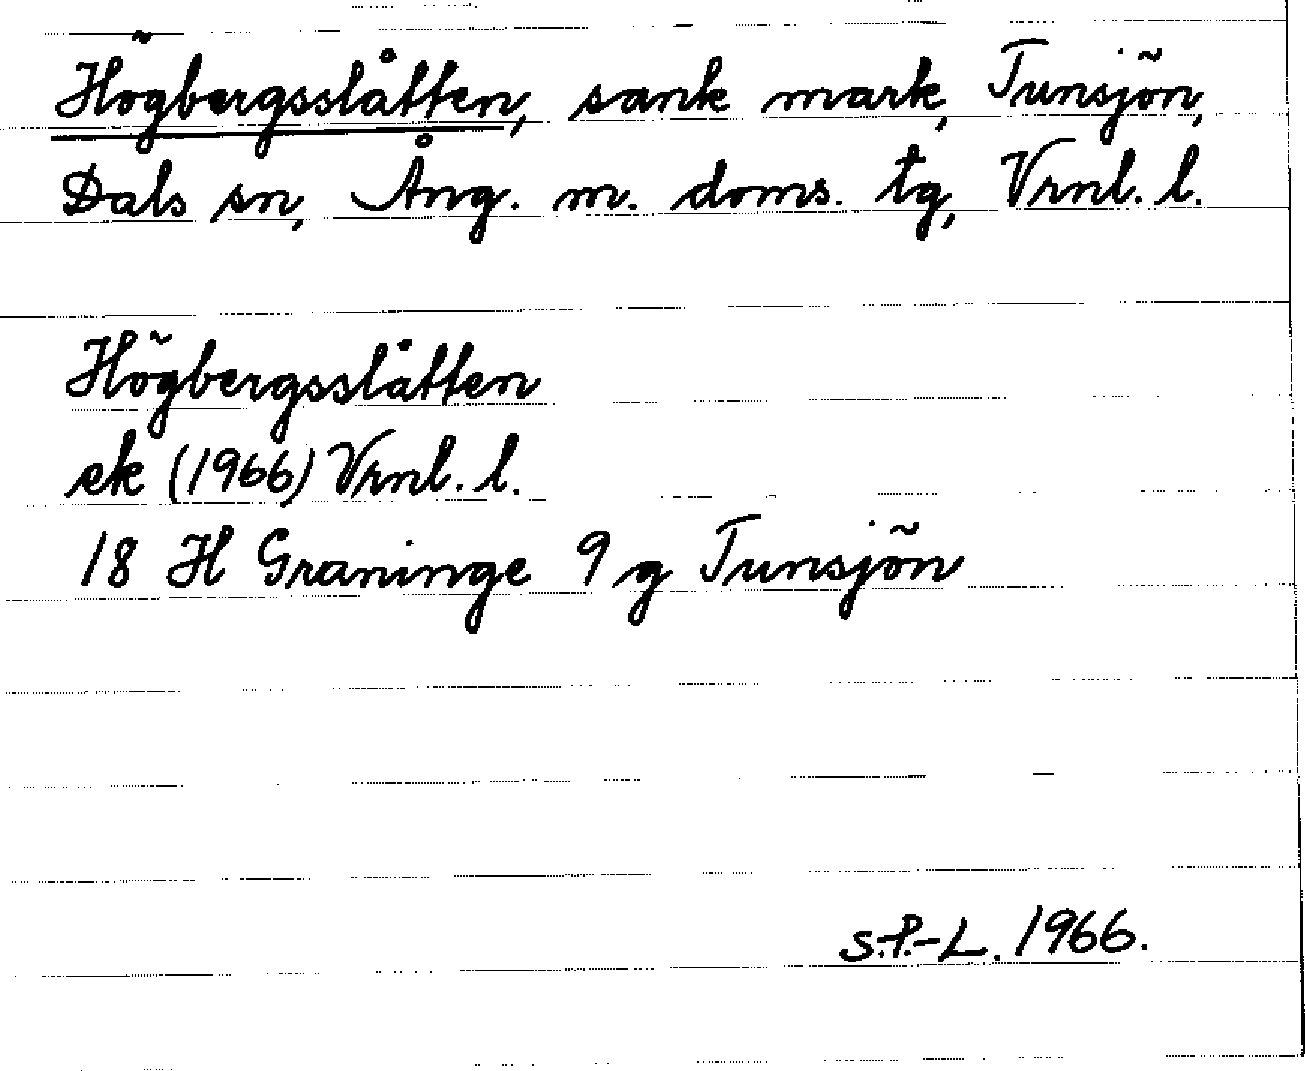 Högbergsslåtten, sank mark, Tunsjön,
Dals sn, Ång. m. doms. tg, Vrnl. l.
Högbergsslåtten
ek (1966) Vrnl. l.
18 H Graninge 9 g Tunsjön
S.P.-L. 1966.